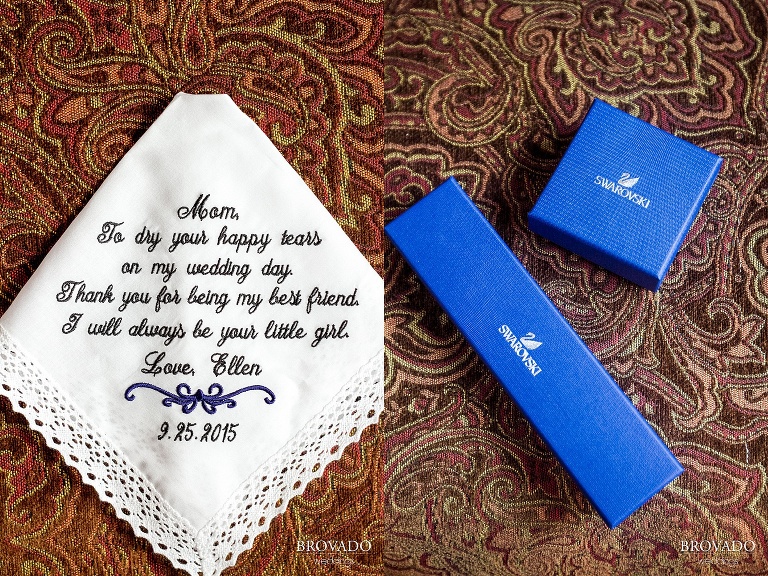 Mom,
To dry your happy tears
on my wedding day.
Thank you for being my best friend.
I will always be your little girl.
Love, Ellen
9.25.2015
BROVADO
weddings
SWAROVSKI
SWAROVSKI
BROVADO
weddings